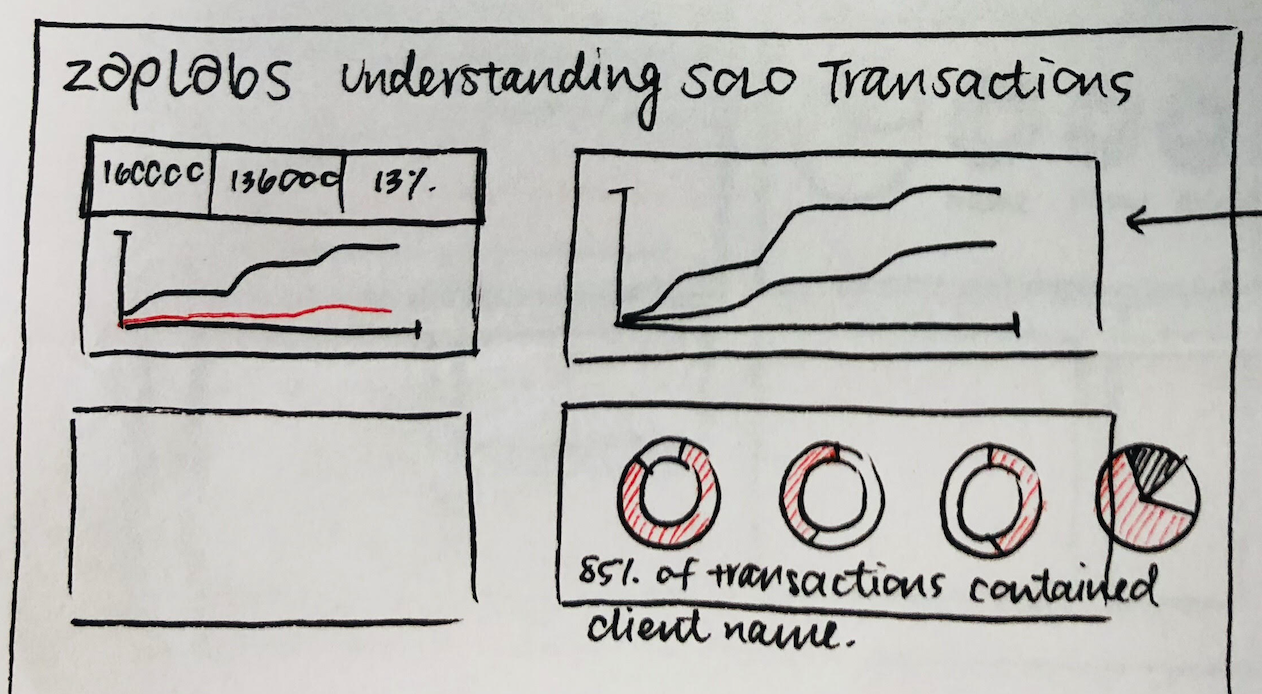 zaplabs Understanding Solo Transactions
160000 136000 13%.
85% of transactions contained
client name.